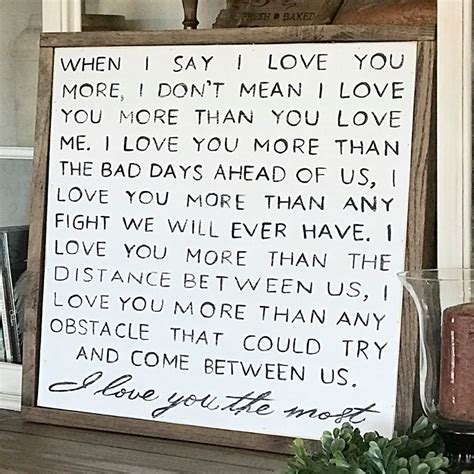 FRESH BAKED
WHEN I SAY I LOVE YOU
MORE, I DON'T MEAN I LOVE
YOU MORE THAN YOU LOVE
ME. I LOVE YOU MORE THAN
THE BAD DAYS AHEAD OF US, I
LOVE YOU MORE THAN ANY
FIGHT WE WILL EVER HAVE. I
LOVE YOU MORE THAN THE
DISTANCE BETWEEN US, I
LOVE YOU MORE THAN ANY
OBSTACLE THAT COULD TRY
AND COME BETWEEN US.
I love you the most